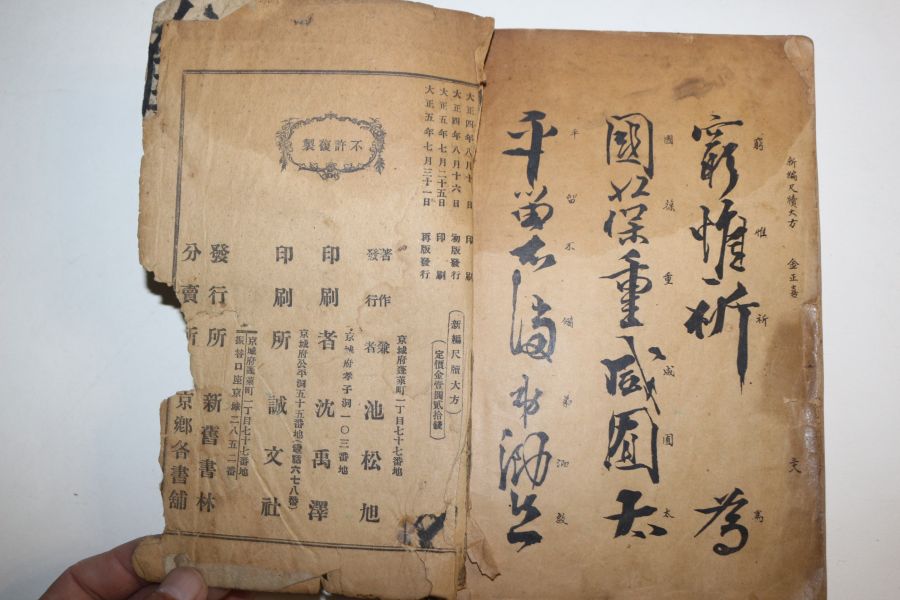 新編尺牘大方 金正喜
窮惟祈 為
窮惟祈 爲
國葆重咸圖太
國葆重咸圖太
平留不備弟
平留不備弟泐
大正四年八月十日 印刷
大正四年八月十六日 初版發行
大正五年七月二十五日 印刷
大正五年七月三十一日 再版發行
不許復製
新編尺牘大方
定價金壹圓貳拾錢
京城府蓬萊町一丁目七十七番地
著作兼發行者 池松旭
京城府孝子洞一〇三番地
印刷者 沈禹澤
京城府公平洞五十五番地(電話六七八番)
印刷所 誠文社
京城府蓬萊町一丁目七十七番地
振替口座京城二八五二番
發行所 新舊書林
分賣所 京鄕各書舖